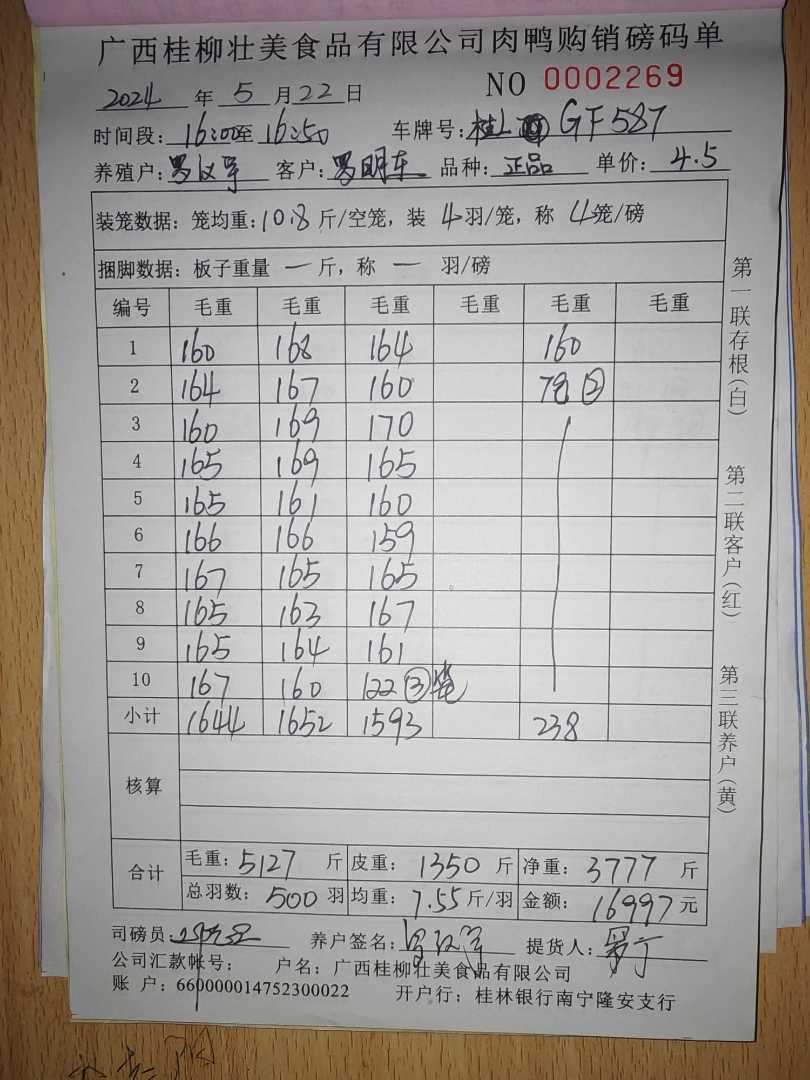 广西桂柳壮美食品有限公司肉鸭购销磅码单
2024 年 5 月 22 日 NO 0002269
时间段: 16:00至16:50 车牌号: 桂 GF587
养殖户: 罗汉 客户: 罗明东 品种: 正品 单价: 4.5
装笼数据: 笼均重: 10.8 斤/空笼, 装 4 羽/笼, 称 4 笼/磅
捆脚数据: 板子重量 一 斤, 称 一 羽/磅
编号 毛重 毛重 毛重 毛重 毛重 毛重
1 160 168 164 160
2 164 167 160 78 ②
3 160 169 170
4 165 169 165
5 165 161 160
6 166 166 159
7 167 165 165
8 165 163 167
9 165 164 161
10 167 160 122 ③笼
小计 1644 1652 1593 238
核算
合计 毛重: 5127 斤 皮重: 1350 斤 净重: 3777 斤
总羽数: 500 羽 均重: 7.55 斤/羽 金额: 16997 元
司磅员: 养户签名: 提货人:
公司汇款帐号: 户名: 广西桂柳壮美食品有限公司
账 户: 660000014752300022 开户行: 桂林银行南宁隆安支行
第一联存根(白)
第二联客户(红)
第三联养户(黄)